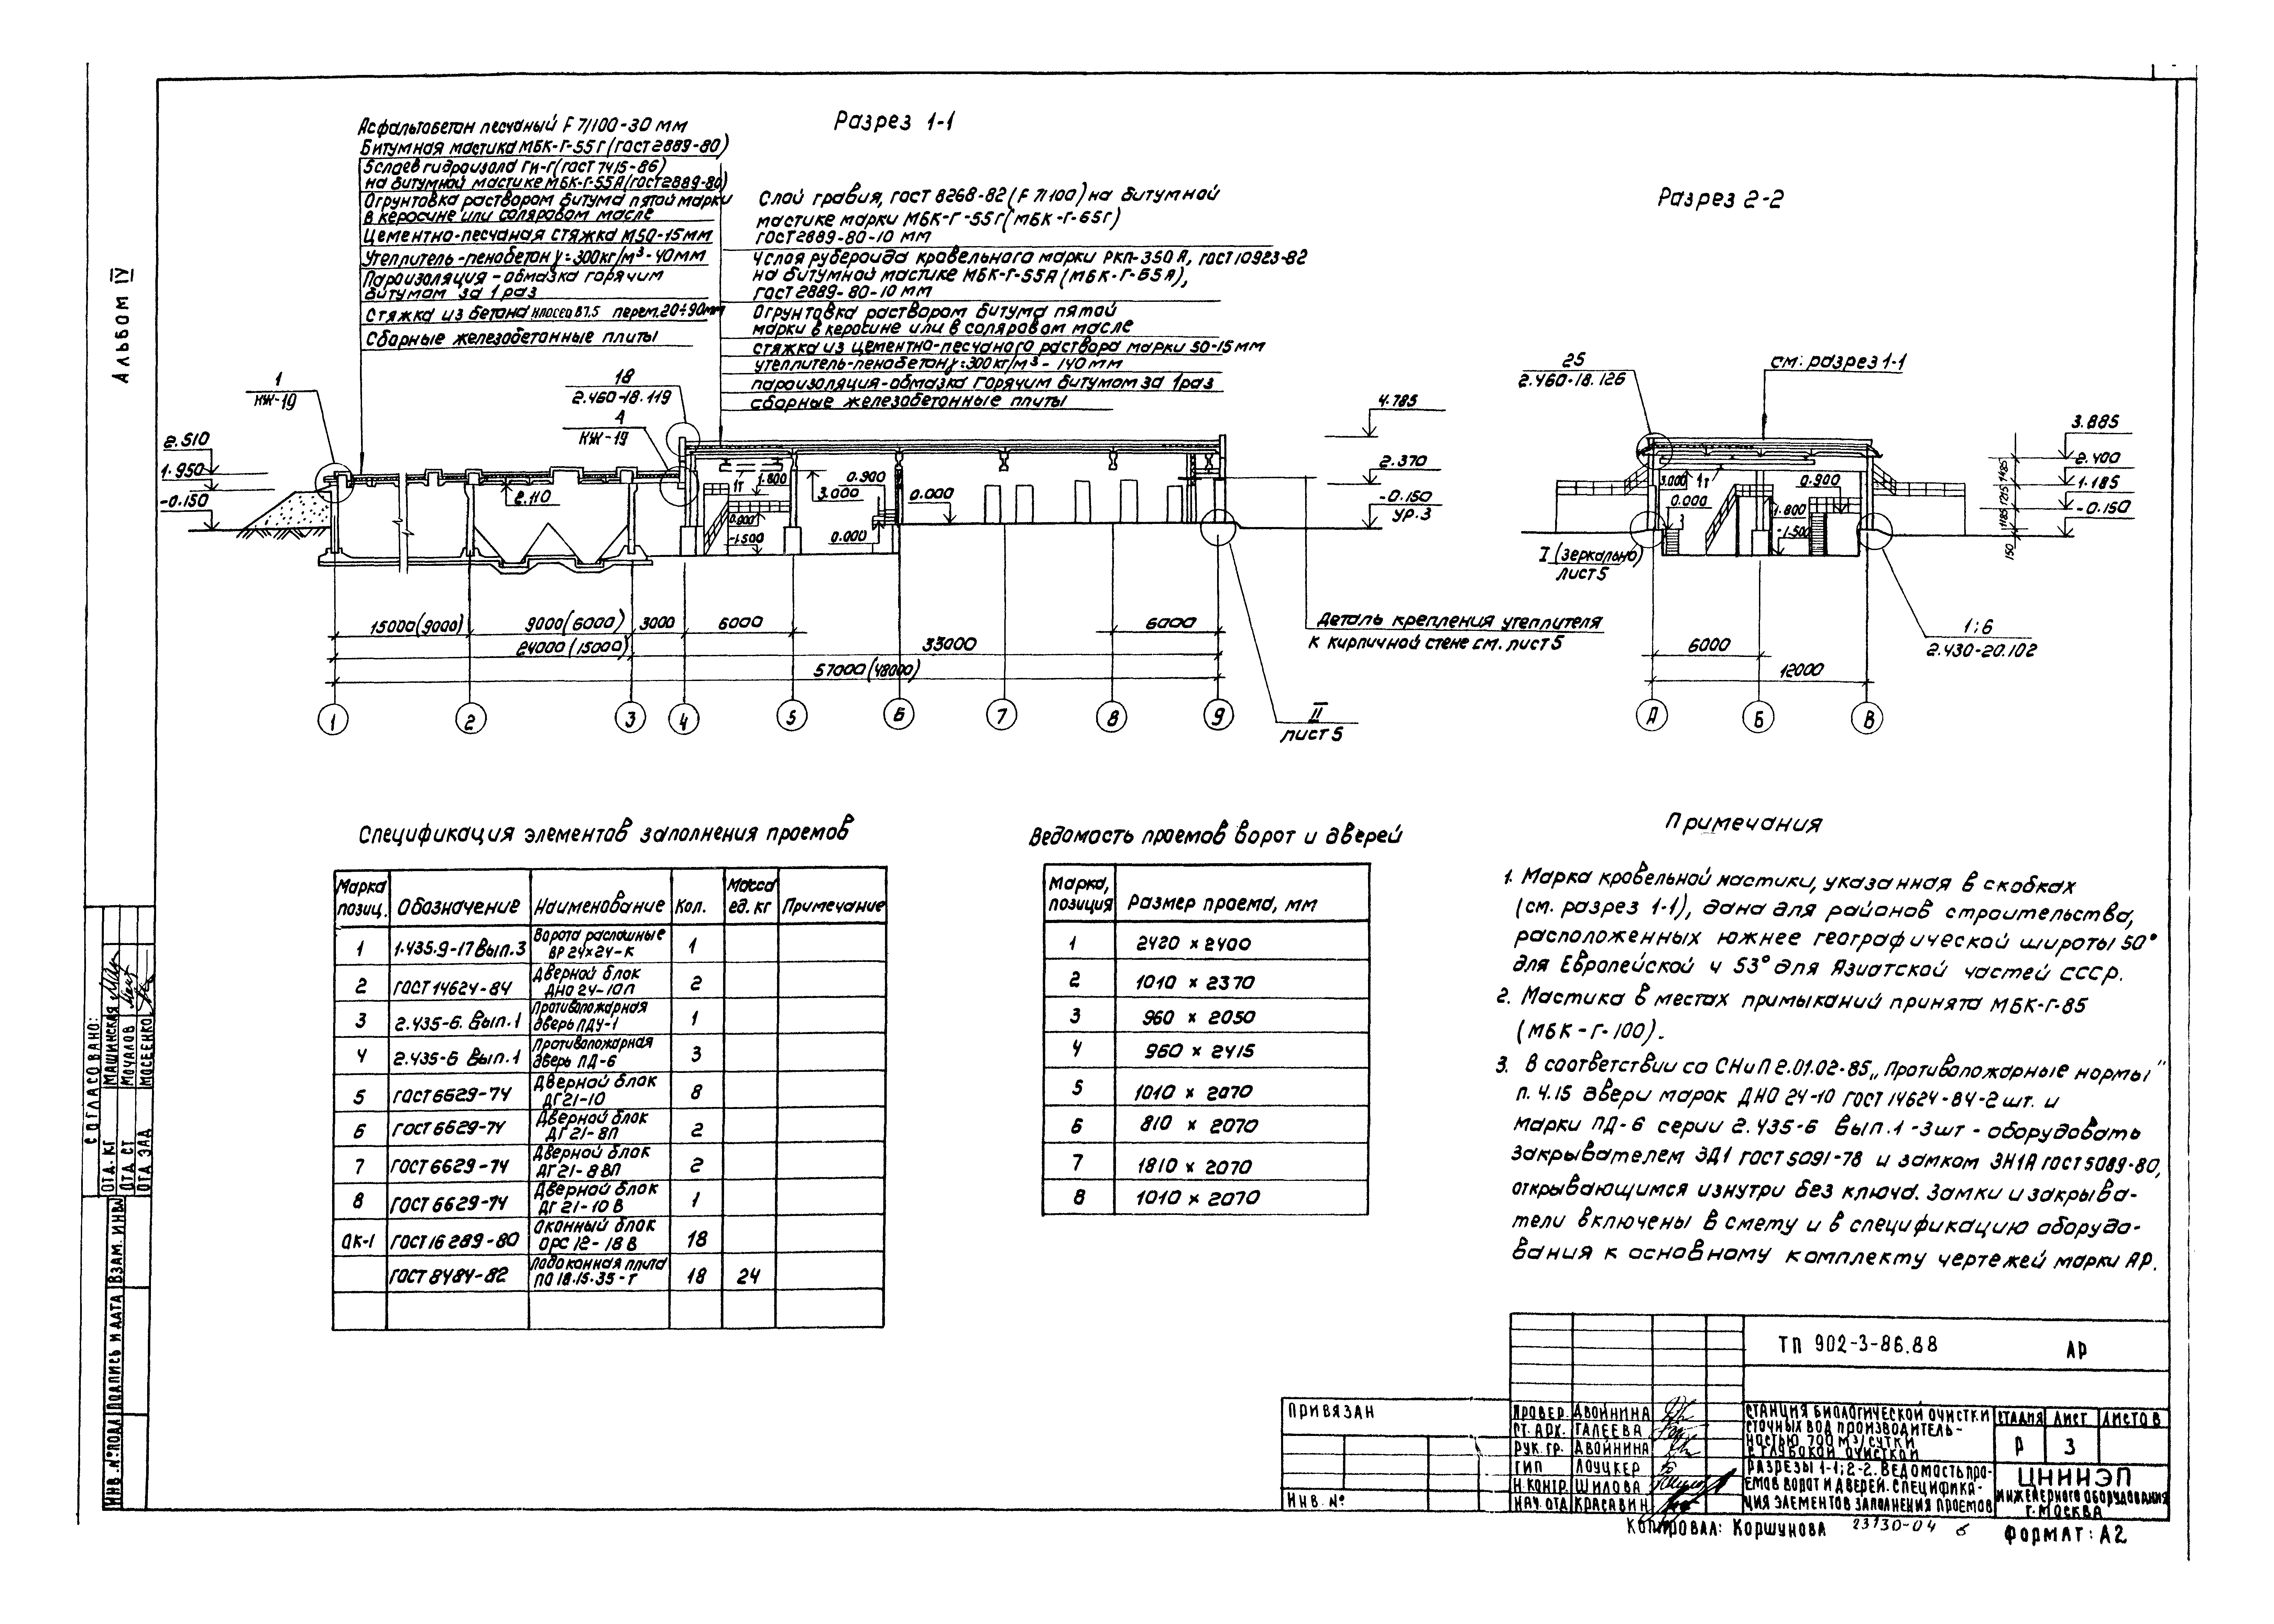 Альбом IV
Разрез 1-1
Асфальтобетон песчаный F 7/100-30 мм
Битумная мастика МБК-Г-55Г (ГОСТ 2889-80)
5 слоев гидроизола ГИ-Г (ГОСТ 7415-86)
на битумной мастике МБК-Г-55А (ГОСТ 2889-80)
Огрунтовка раствором битума пятой марки
в керосине или соляровом масле
Цементно-песчаная стяжка М50-15мм
Утеплитель-пенобетон γ=300кг/м³-40мм
Пароизоляция-обмазка горячим
битумом за 1 раз
Стяжка из бетона класса В7,5 перем. 20÷90мм
Сборные железобетонные плиты
Слой гравия, ГОСТ 8268-82 (F 7/100) на битумной
мастике марки МБК-Г-55Г (МБК-Г-65Г)
ГОСТ 2889-80-10 мм
4 слоя рубероида кровельного марки РКП-350А, ГОСТ 10923-82
на битумной мастике МБК-Г-55А (МБК-Г-65А),
ГОСТ 2889-80-10 мм
Огрунтовка раствором битума пятой
марки в керосине или в соляровом масле
стяжка из цементно-песчаного раствора марки 50-15 мм
утеплитель-пенобетон γ=300кг/м³-140мм
пароизоляция-обмазка горячим битумом за 1 раз
сборные железобетонные плиты
1
КЖ-19
18
2.460-18.119
4
КЖ-19
2.510
1.950
-0.150
2.110
1т
1.800
3.000
0.900
0.900
0.000
-1.500
0.000
4.785
2.370
-0.150
ур.3
15000(9000)
9000(6000)
3000
6000
6000
24000(15000)
33000
57000(48000)
1
2
3
4
5
6
7
8
9
Деталь крепления утеплителя
к кирпичной стене см. лист 5
II
лист 5
Разрез 2-2
25
2.460-18.126
см. разрез 1-1
3.000
1т
0.900
0.000
1.800
-1.500
3.885
2.400
1.185
-0.150
1485
1215
1185
150
I (зеркально)
лист 5
1;6
2.430-20.102
6000
12000
А
Б
В
Спецификация элементов заполнения проемов
Марка позиц. Обозначение Наименование Кол. Масса ед. кг Примечание
1 1.435.9-17 Вып.3 Ворота распашные ВР 24х24-К 1
2 ГОСТ 14624-84 Дверной блок ДНО 24-10П 2
3 2.435-6. Вып.1 Противопожарная дверь ПДУ-1 1
4 2.435-6 Вып.1 Противопожарная дверь ПД-6 3
5 ГОСТ 6629-74 Дверной блок ДГ21-10 8
6 ГОСТ 6629-74 Дверной блок ДГ21-8П 2
7 ГОСТ 6629-74 Дверной блок ДГ21-8ВП 2
8 ГОСТ 6629-74 Дверной блок ДГ21-10В 1
ОК-1 ГОСТ 16289-80 Оконный блок ОРС 12-18В 18
ГОСТ 8484-82 Подоконная плита ПО 18.15.35-Т 18 24
Ведомость проемов ворот и дверей
Марка, позиция Размер проема, мм
1 2420 х 2400
2 1010 х 2370
3 960 х 2050
4 960 х 2415
5 1010 х 2070
6 810 х 2070
7 1810 х 2070
8 1010 х 2070
Примечания
1. Марка кровельной мастики, указанная в скобках
(см. разрез 1-1), дана для районов строительства,
расположенных южнее географической широты 50°
для Европейской и 53° для Азиатской частей СССР.
2. Мастика в местах примыканий принята МБК-Г-85
(МБК-Г-100).
3. В соответствии со СНиП 2.01.02-85 „Противопожарные нормы"
п. 4.15 двери марок ДНО 24-10 ГОСТ 14624-84-2 шт. и
марки ПД-6 серии 2.435-6 Вып.1-3шт-оборудовать
закрывателем ЗД1 ГОСТ 5091-78 и замком ЗН1А ГОСТ 5089-80,
открывающимся изнутри без ключа. Замки и закрыва-
тели включены в смету и в спецификацию оборудо-
вания к основному комплекту чертежей марки АР.
СОГЛАСОВАНО:
ОТД. КГ МАШИНСКАЯ
ОТД СТ МОЧАЛОВ
ОТД ЗАД МОСЕЕНКО
ИНВ.№ПОДЛ ПОДПИСЬ И ДАТА ВЗАМ. ИНВ№
ПРИВЯЗАН
ИНВ. №
ТП 902-3-86.88
АР
ПРОВЕР. ДВОЙНИНА
СТ. АРХ. ГАЛЕЕВА
РУК. ГР. ДВОЙНИНА
ГИП ЛОУЦКЕР
Н.КОНТР. ШИЛОВА
НАЧ. ОТД КРАСАВИН
СТАНЦИЯ БИОЛОГИЧЕСКОЙ ОЧИСТКИ
СТОЧНЫХ ВОД ПРОИЗВОДИТЕЛЬ-
НОСТЬЮ 700 М³/СУТКИ
С ГЛУБОКОЙ ОЧИСТКОЙ
СТАДИЯ ЛИСТ ЛИСТОВ
Р 3
РАЗРЕЗЫ 1-1; 2-2. ВЕДОМОСТЬ ПРО-
ЕМОВ ВОРОТ И ДВЕРЕЙ. СПЕЦИФИКА-
ЦИЯ ЭЛЕМЕНТОВ ЗАПОЛНЕНИЯ ПРОЕМОВ
ЦНИИЭП
ИНЖЕНЕРНОГО ОБОРУДОВАНИЯ
Г. МОСКВА
КОПИРОВАЛ: КОРШУНОВА 23130-04 6 ФОРМАТ: А2